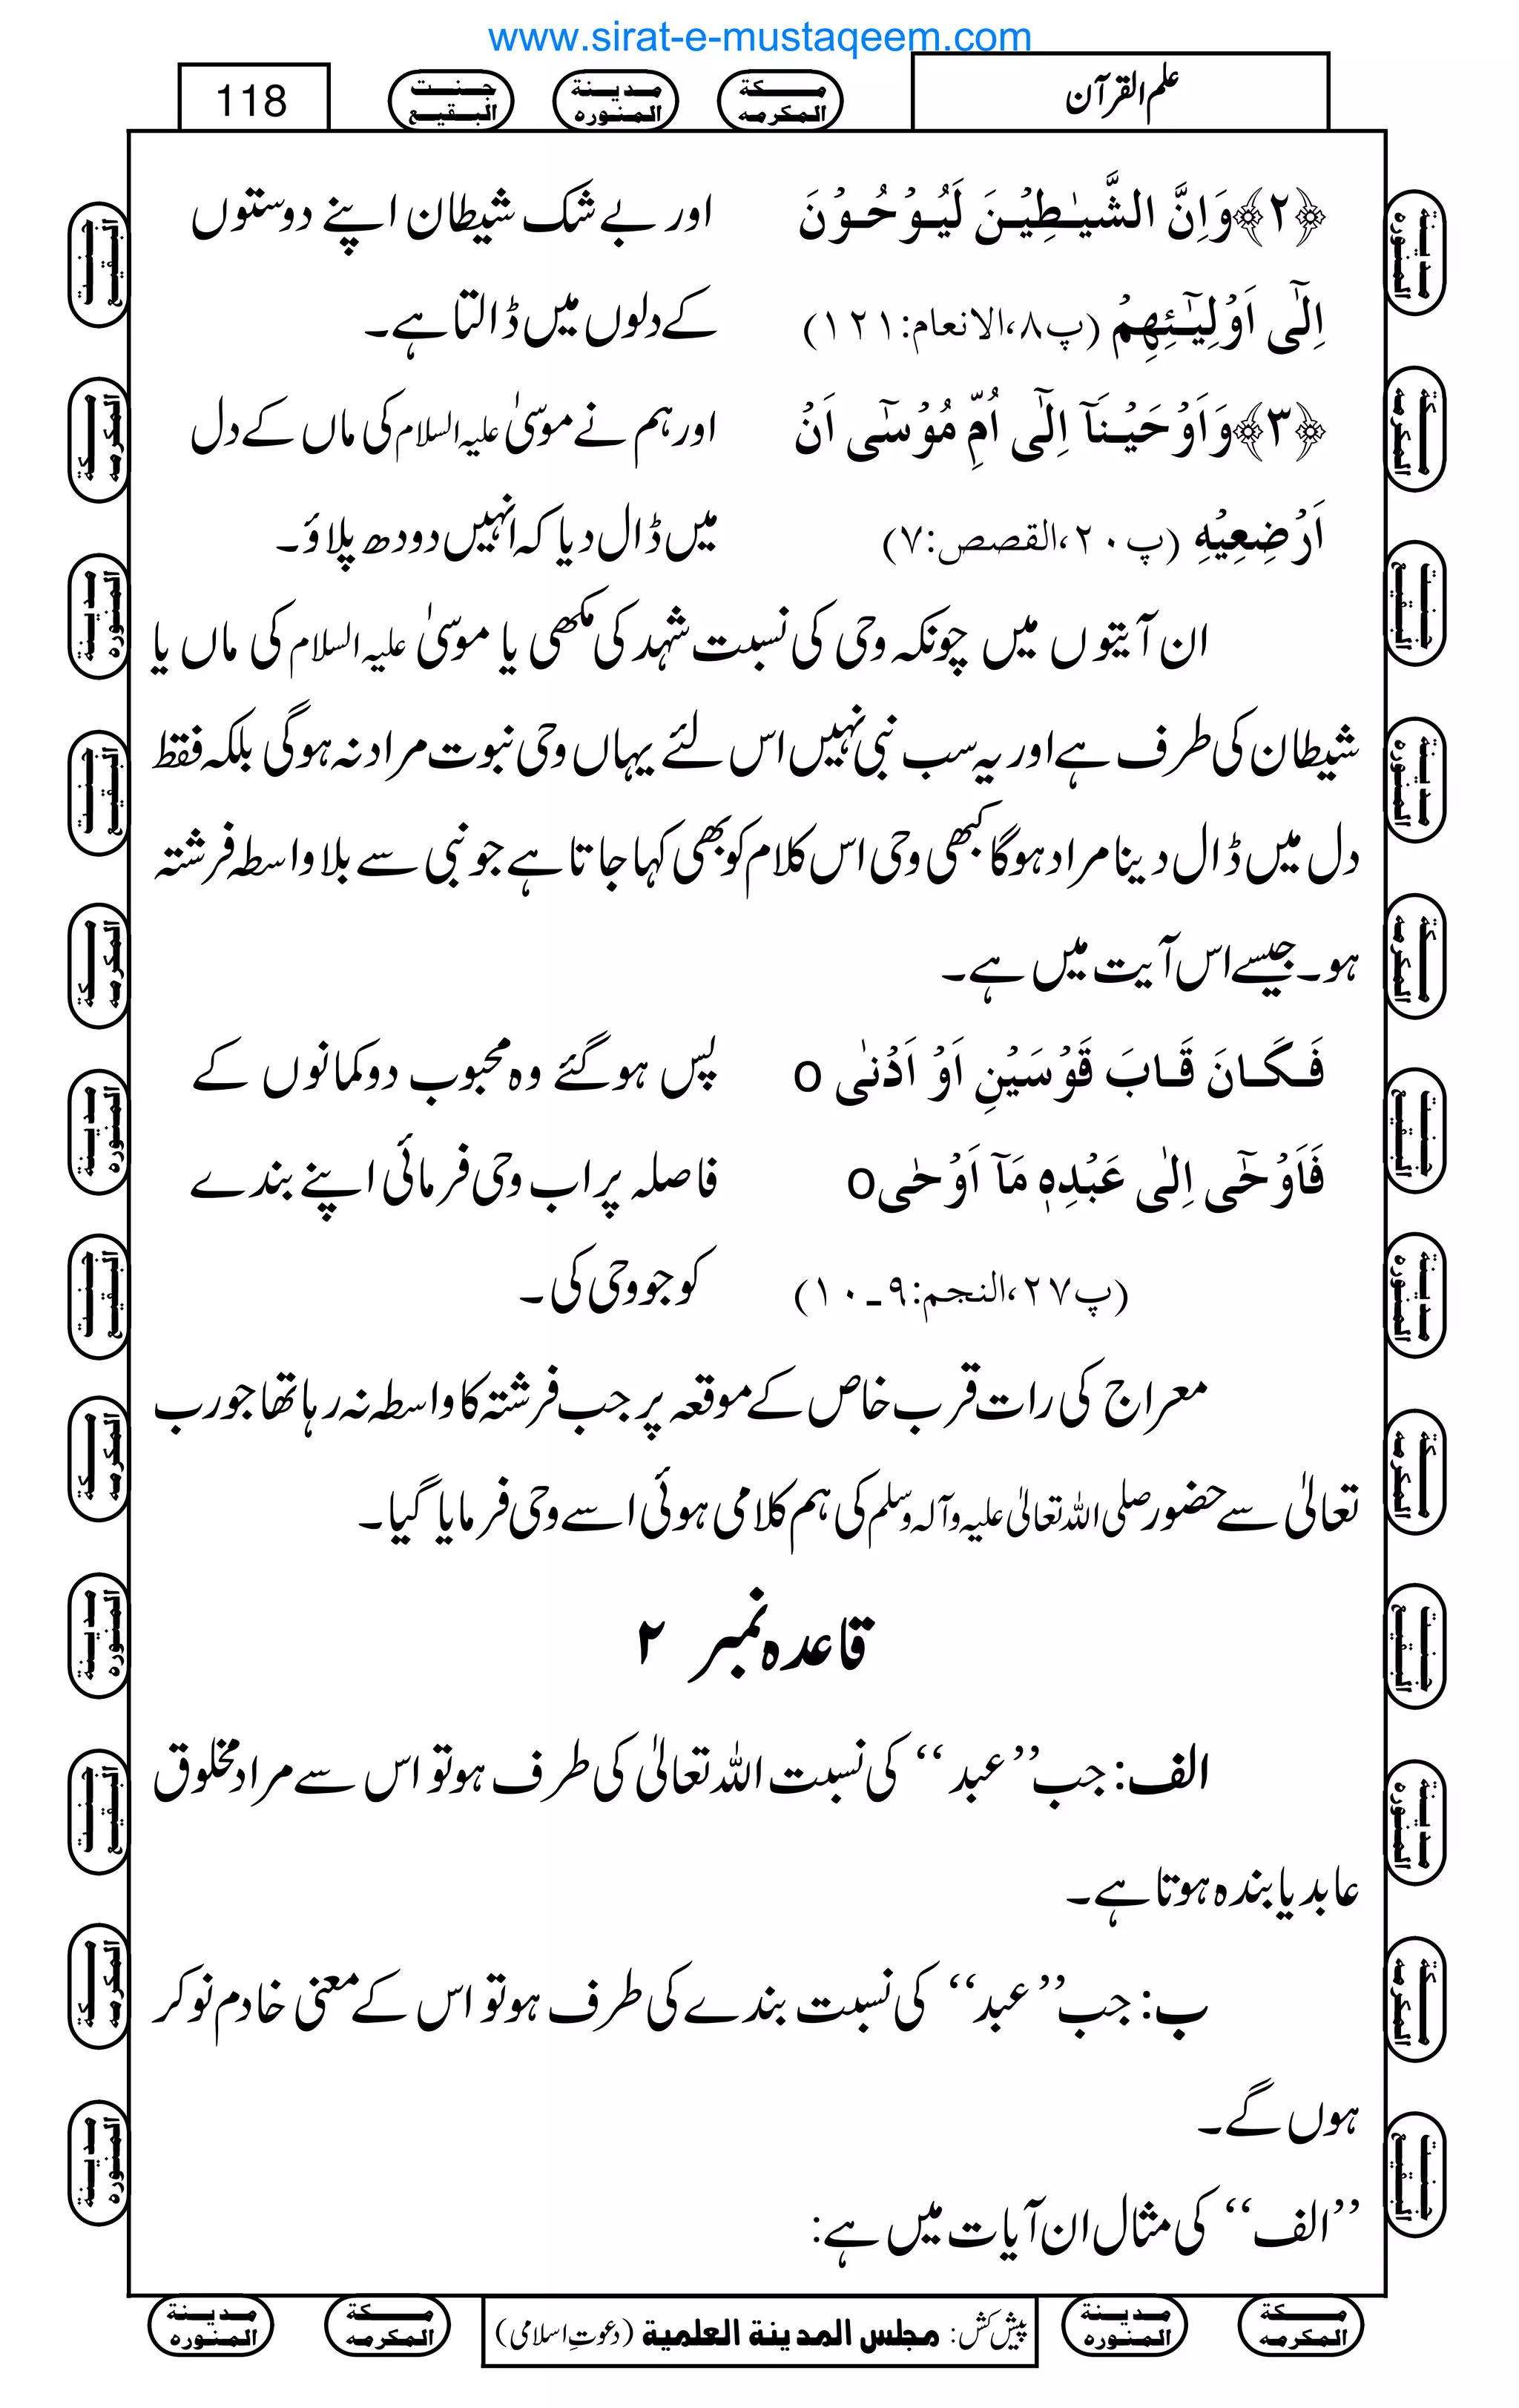 www.sirat-e-mustaqeem.com
علم القرآن
مكة المكرمه
مدينة المنوره
جنت البقيع
118
﴿۲﴾وَاِنَّ الشَّیٰطِیْنَ لَیُوْحُوْنَ اور بے شک شیطان اپنے دوستوں
اِلٰۤی اَوْلِیٰٓـِٕهِمْ (پ۸،الانعام:۱۲۱) کے دلوں میں ڈالتا ہے۔
﴿۳﴾وَاَوْحَیْنَاۤ اِلٰۤی اُمِّ مُوْسٰۤی اَنْ اور ہم نے موسیٰ علیہ السلام کی ماں کے دل
اَرْضِعِیْهِ (پ۲۰،القصص:۷) میں ڈال دیا کہ انہیں دودھ پلاؤ۔
ان آیتوں میں چونکہ وحی کی نسبت شہد کی مکھی یا موسیٰ علیہ السلام کی ماں یا
شیطان کی طرف ہے اور یہ سب نبی نہیں اس لئے یہاں وحی نبوت مراد نہ ہوگی بلکہ فقط
دل میں ڈال دینا مراد ہوگا کبھی وحی اس کلام کو بھی کہا جاتا ہے جو نبی سے بلا واسطہ فرشتہ
ہو۔ جیسے اس آیت میں ہے۔
فَکَانَ قَابَ قَوْسَیْنِ اَوْ اَدْنٰی o پس ہوگئے وہ محبوب دو کمانوں کے
فَاَوْحٰۤی اِلٰی عَبْدِهٖ مَاۤ اَوْحٰی o فاصلہ پر اب وحی فرمائی اپنے بندے
(پ۲۷،النجم:۹۔۱۰) کو جو وحی کی۔
معراج کی رات قرب خاص کے موقعہ پر جب فرشتہ کا واسطہ نہ رہا تھا جو رب
تعالیٰ سے حضور صلی اللہ تعالیٰ علیہ وآلہ وسلم کی ہم کلامی ہوئی اسے وحی فرمایا گیا۔
قاعدہ نمبر ۲
الف: جب ’’عبد‘‘ کی نسبت اللہ تعالیٰ کی طرف ہو تو اس سے مراد مخلوق
عابد یا بندہ ہوتا ہے۔
ب: جب ’’عبد‘‘ کی نسبت بندے کی طرف ہو تو اس کے معنی خادم نوکر
ہوں گے۔
’’الف‘‘ کی مثال ان آیات میں ہے:
مكة المكرمه
مدينة المنوره
پیش کش: مجلس المدينة العلمية (دعوتِ اسلامی)
مكة المكرمه
مدينة المنوره